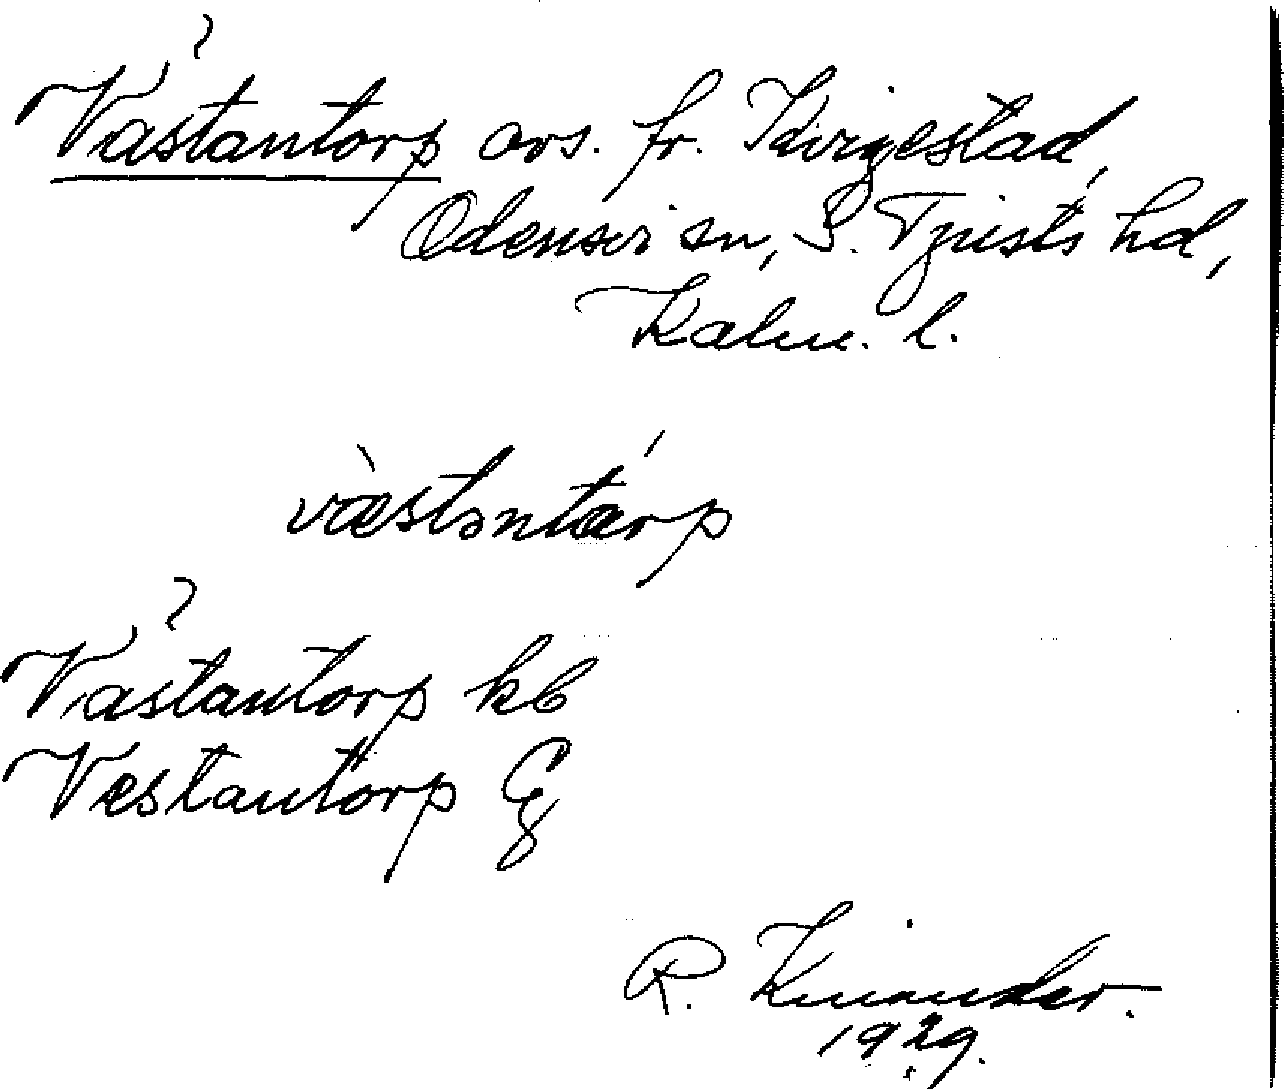 Västantorp avs. fr. Kvigestad,
Odensvi sn, S. Tjusts hd,
Kalm. l.
væ̀stəntárp
Västantorp kb
Vestantorp Ek
R. Kinander.
1929.